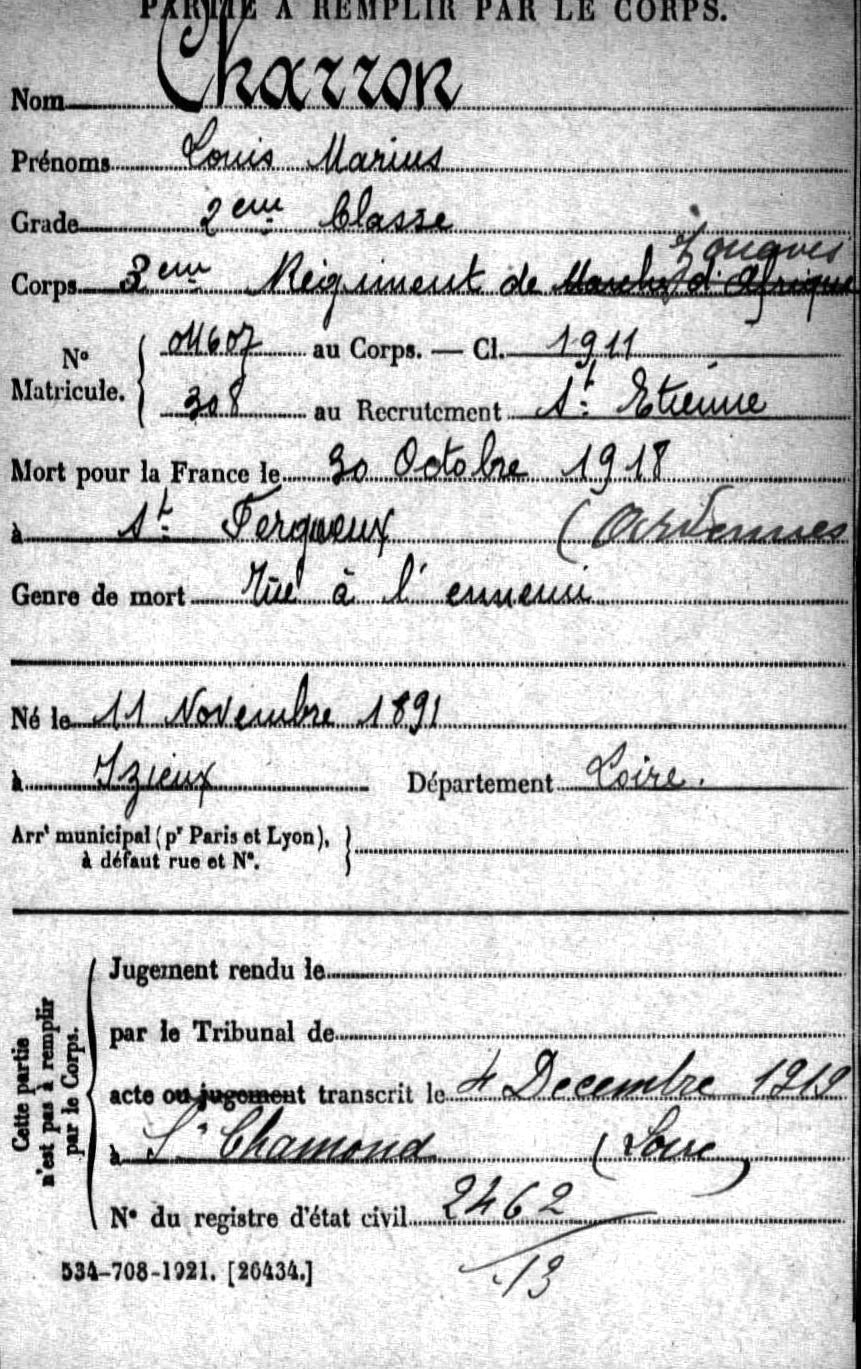 PARTIE À REMPLIR PAR LE CORPS.
Nom Charron
Prénoms Louis Marius
Grade 2eme Classe
Zouaves
Corps 3eme Régiment de Marche d'Afrique
N° Matricule. { 04607 au Corps. — Cl. 1911
308 au Recrutement St Etienne
Mort pour la France le 30 Octobre 1918
à St Fergueux (Ardennes
Genre de mort Tué à l'ennemi
Né le 11 Novembre 1891
à Izieux Département Loire.
Arrt municipal (pr Paris et Lyon), à défaut rue et N°. }
Cette partie n'est pas à remplir par le Corps.
Jugement rendu le
par le Tribunal de
acte ou jugement transcrit le 4 Decembre 1919
à St Chamond (Loire)
N° du registre d'état civil 2462
13
534-708-1921. [26434.]